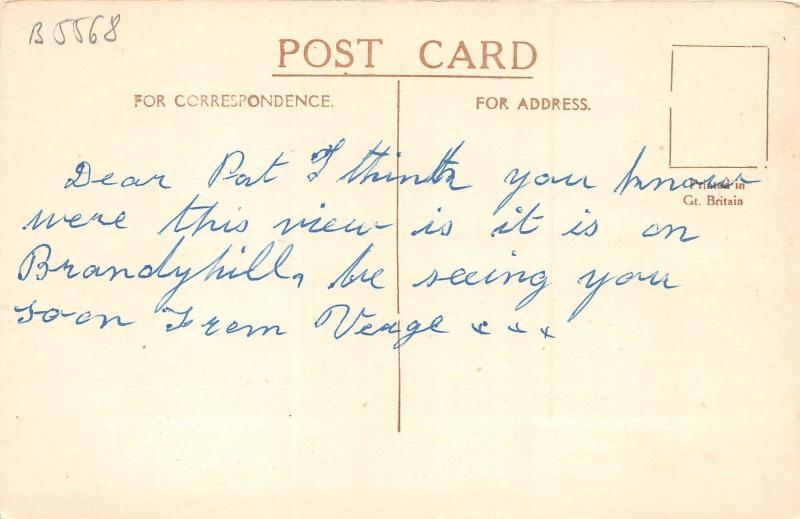 B5568
POST CARD
FOR CORRESPONDENCE.
FOR ADDRESS.
Printed in
Gt. Britain
Dear Pat I think you know
were this view is it is on
Brandyhill, be seeing you
soon From Verge x x x